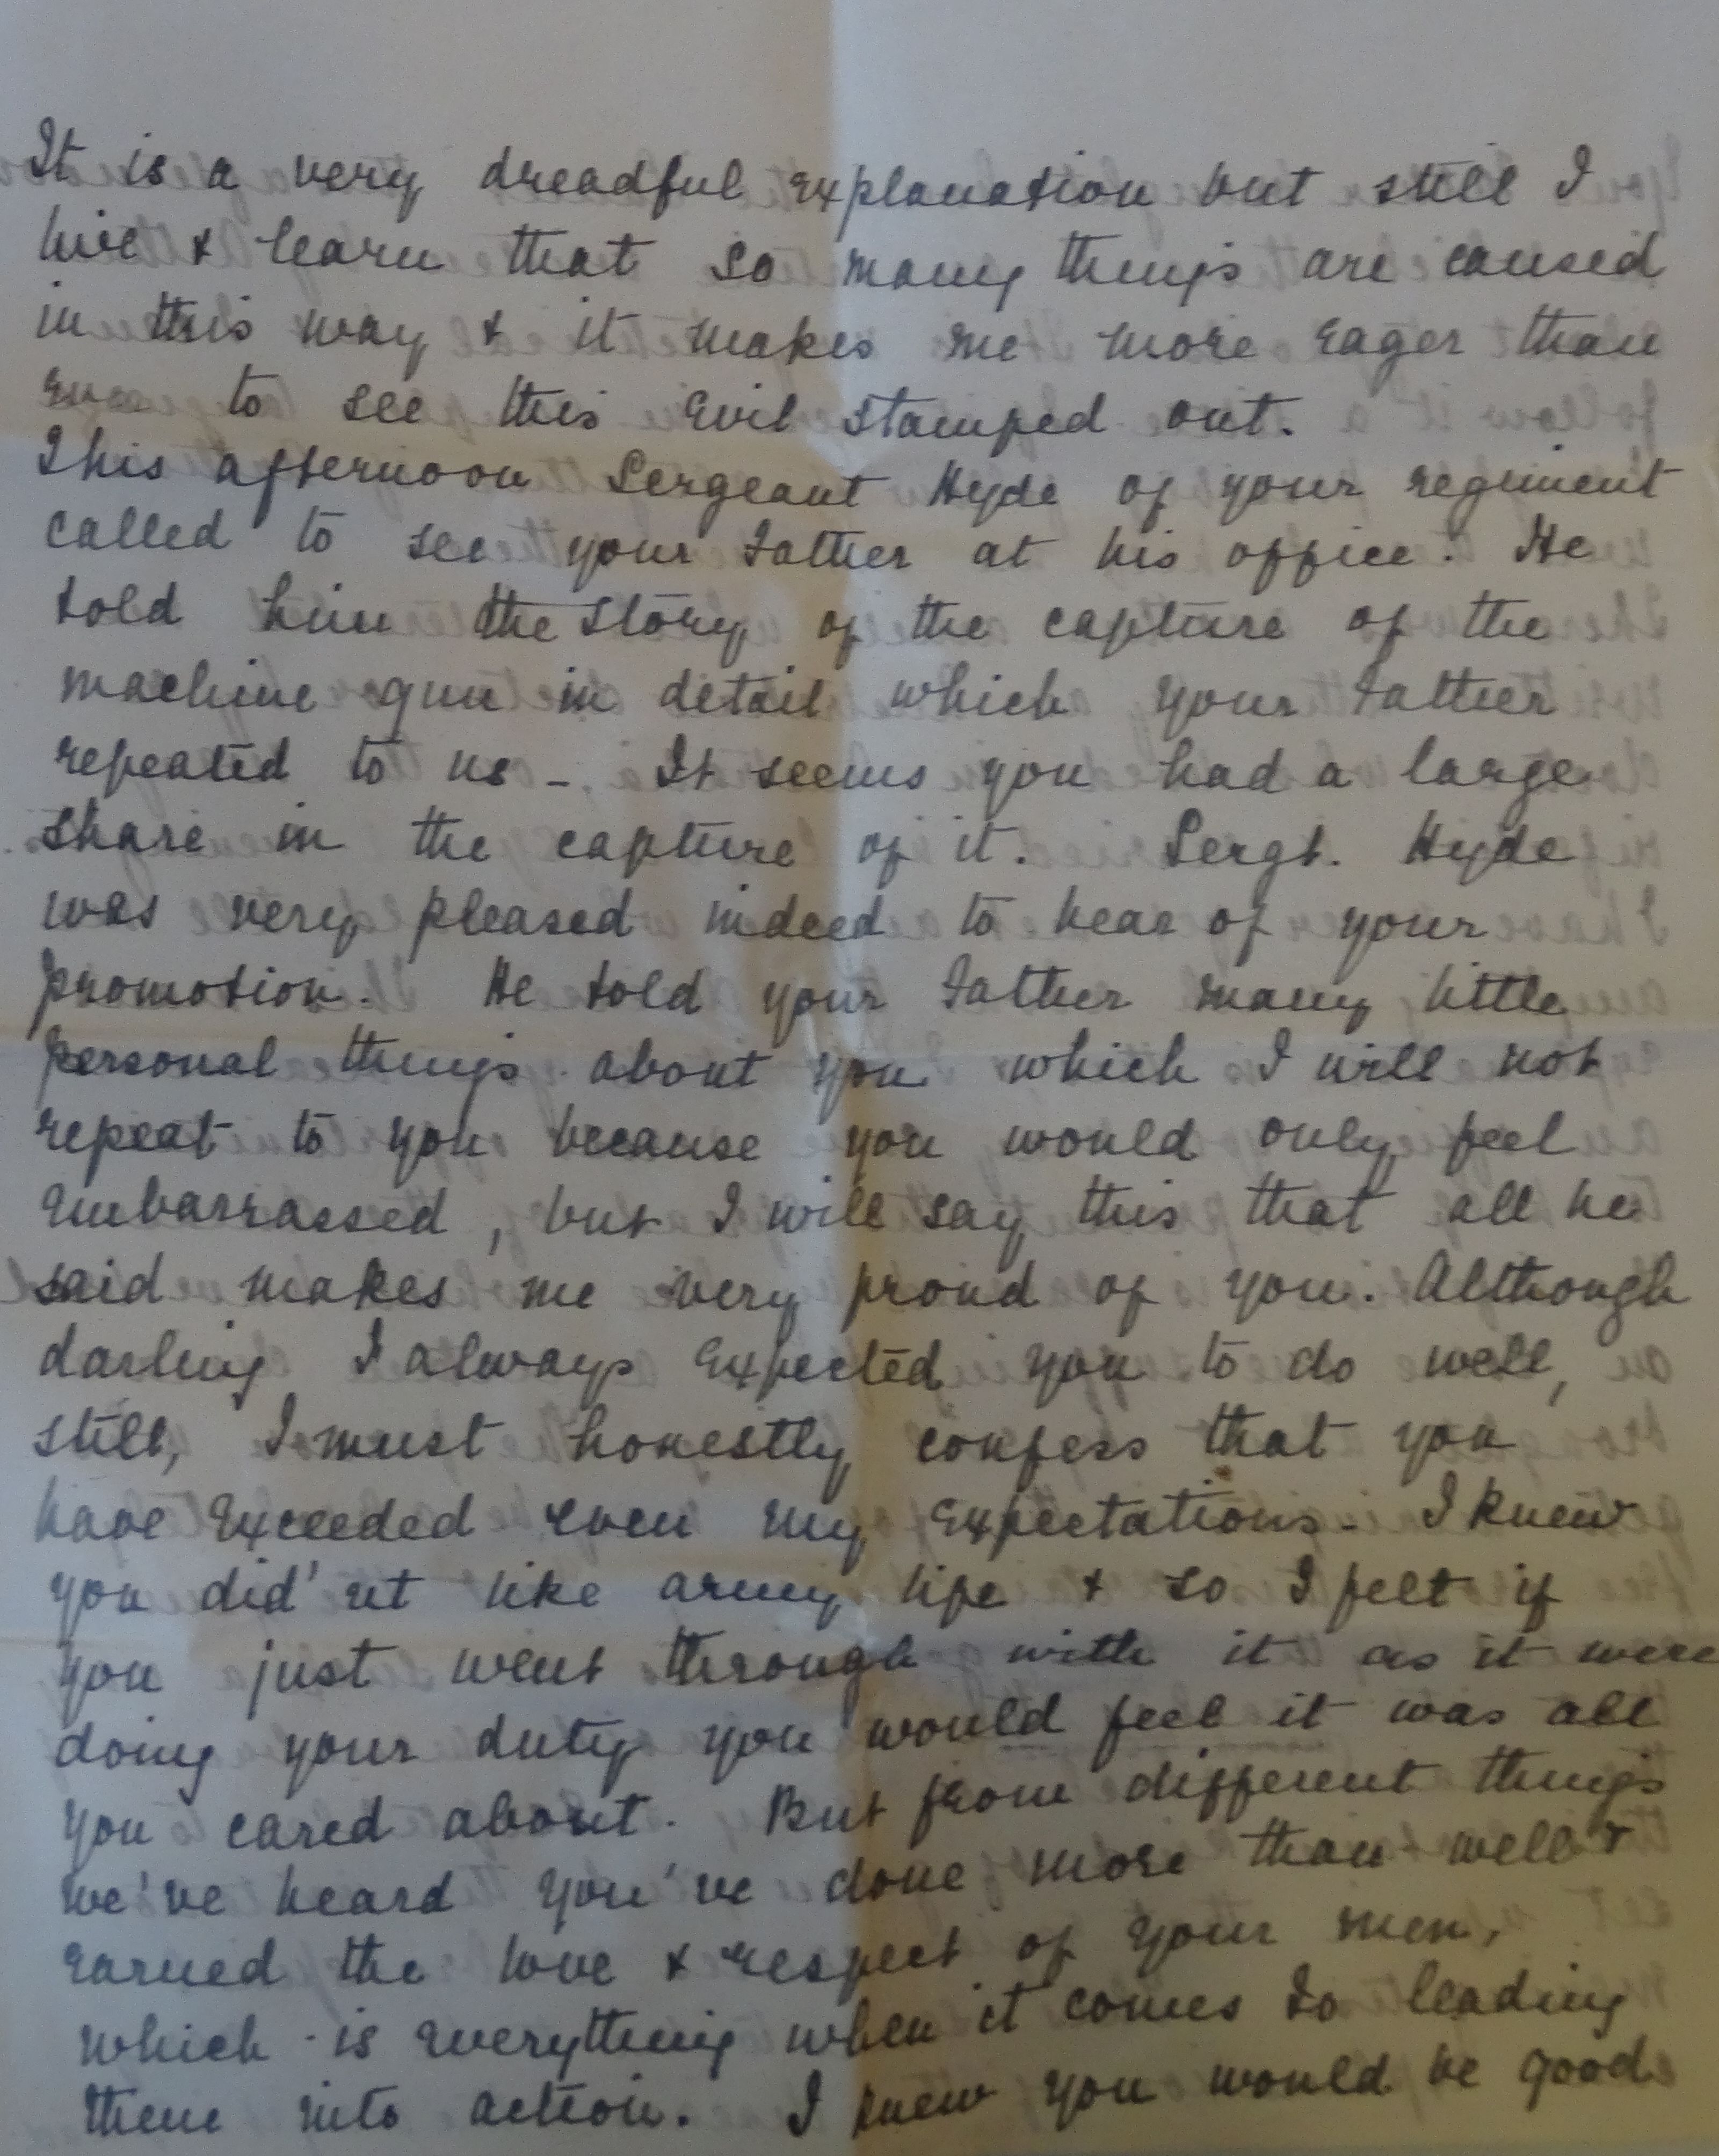 It is a very dreadful explanation but still I
live & learn that so many things are caused
in this way & it makes me more eager than
ever to see this evil stamped out.
This afternoon Sergeant Hyde of your regiment
called to see your Father at his office. He
told him the story of the capture of the
machine gun in detail which your Father
repeated to us -. It seems you had a large
share in the capture of it. Sergt. Hyde
was very pleased indeed to hear of your
promotion. He told your Father many little
personal things about you which I will not
repeat to you because you would only feel
embarrassed, but I will say this that all he
said makes me very proud of you. Although
darling I always expected you to do well,
still, I must honestly confess that you
have exceeded even my expectations - I knew
you did'nt like army life & so I felt if
you just went through with it as it were
doing your duty you would feel it was all
you cared about. But from different things
we've heard you've done more than well &
earned the love & respect of your men,
which is everything when it comes to leading
them into action. I knew you would be good